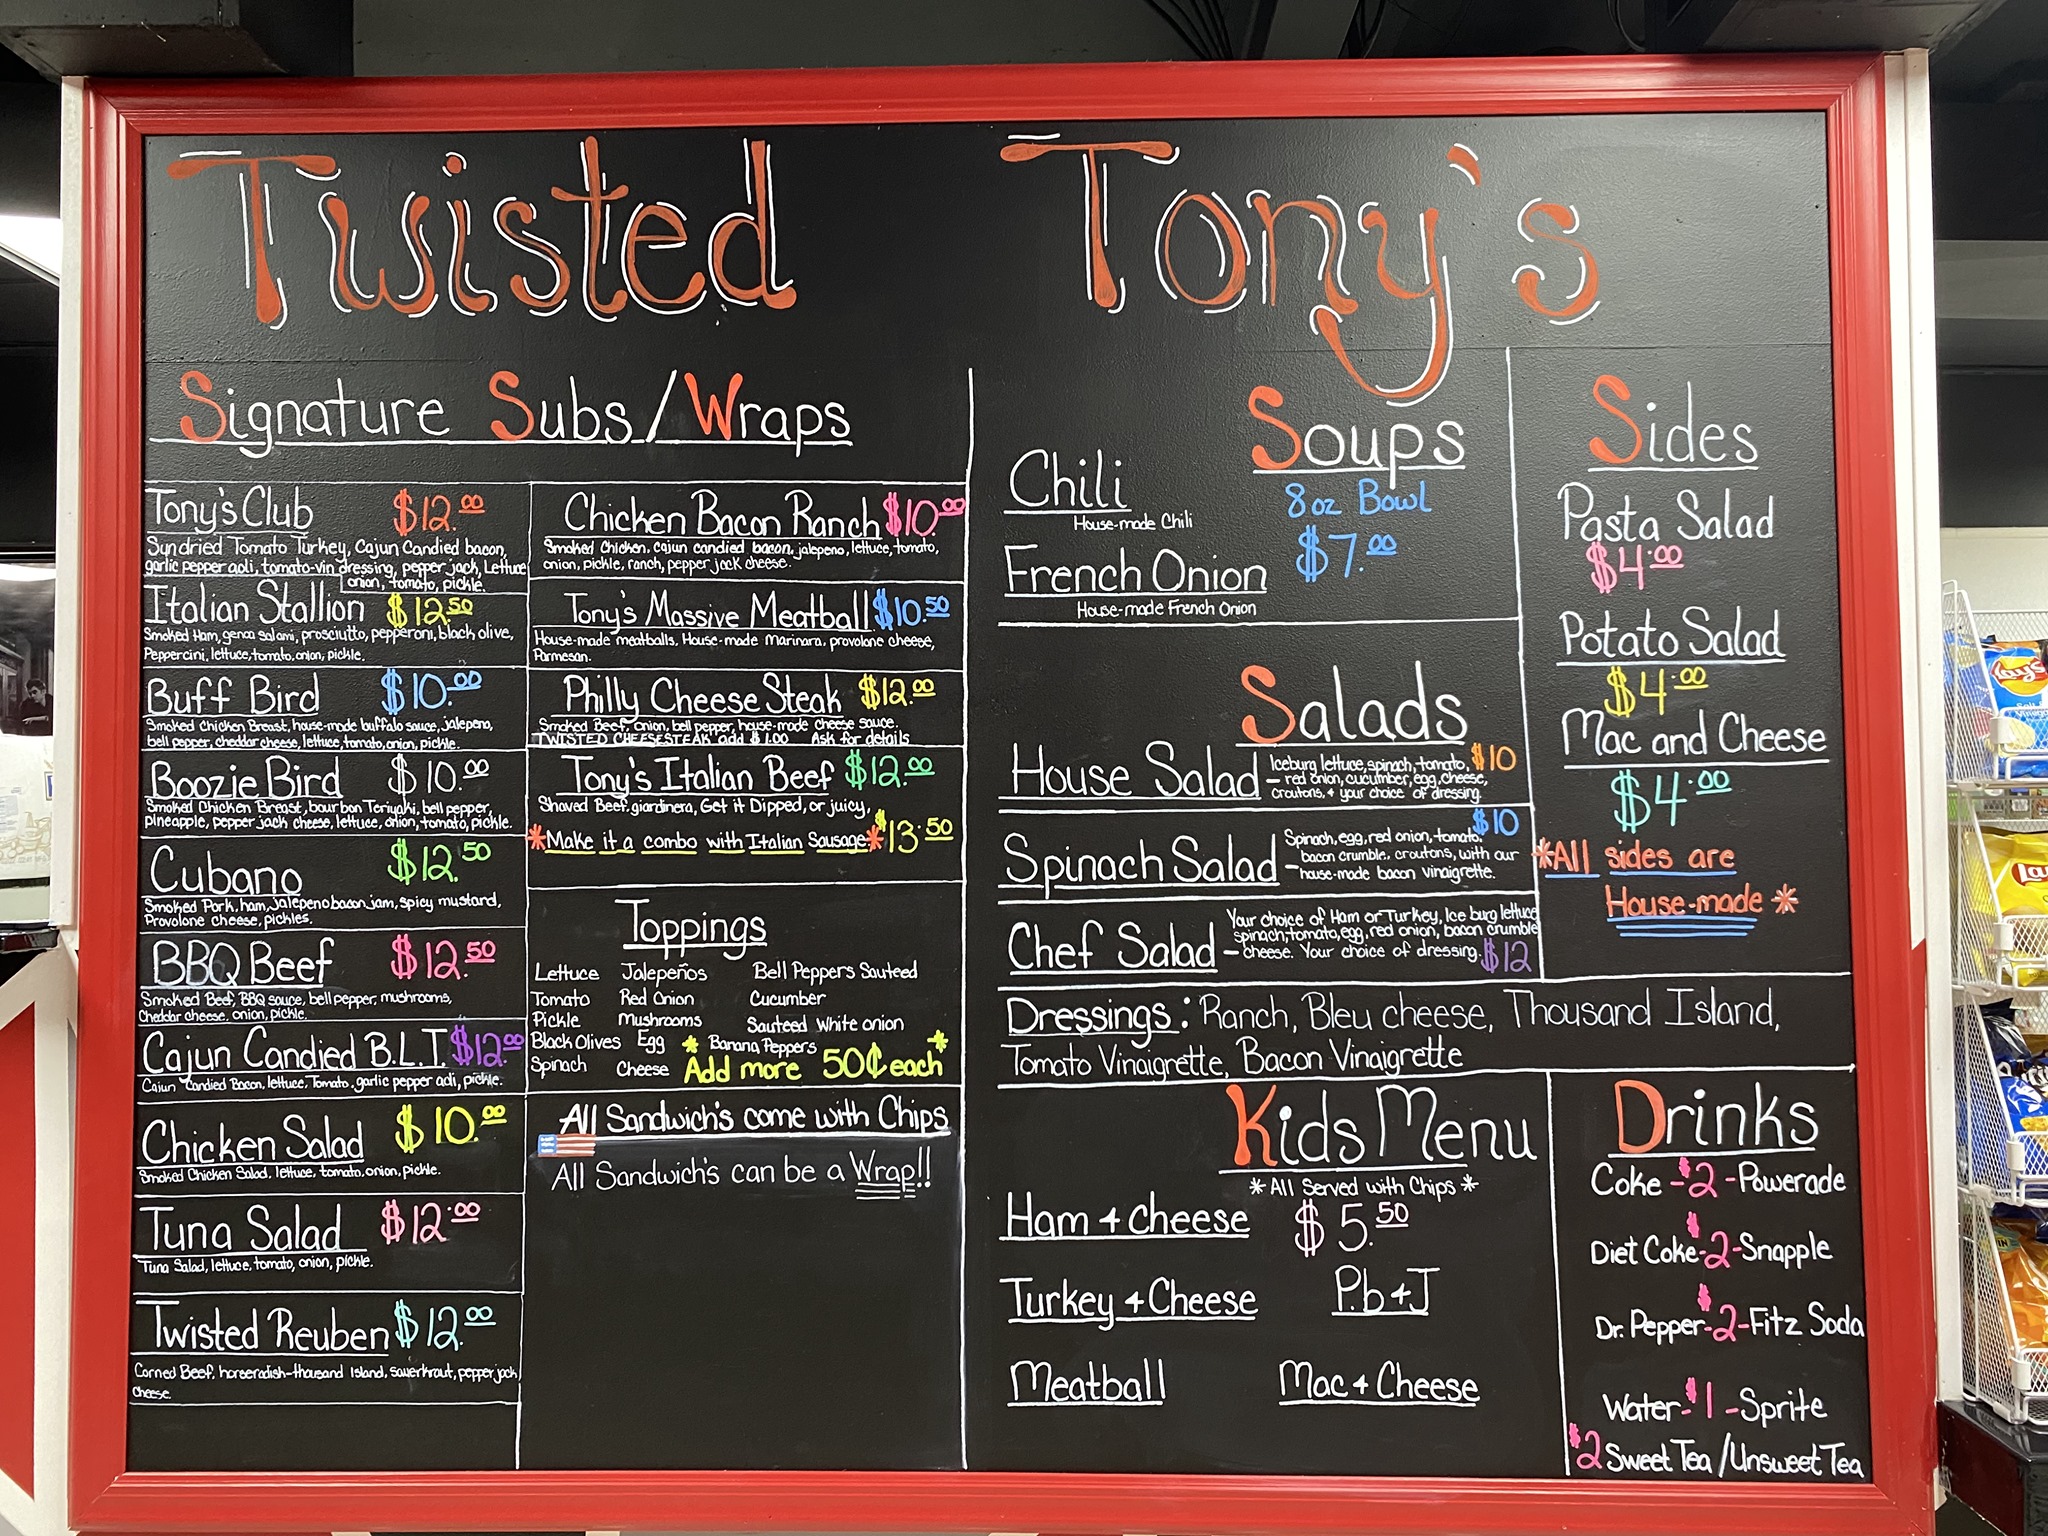 Twisted Tony's
Signature Subs/Wraps
Tony's Club $12.00
Syndried Tomato Turkey, Cajun Candied bacon,
garlic pepper aoli, tomato-vin dressing, pepper jack, Lettuce
onion, tomato, pickle.
Italian Stallion $12.50
Smoked Ham, genoa salami, prosciutto, pepperoni, black olive,
Peppercini, lettuce, tomato, onion, pickle.
Buff Bird $10.00
Smoked Chicken Breast, house-made buffalo sauce, jalepeno,
bell pepper, cheddar cheese, lettuce, tomato, onion, pickle.
Boozie Bird $10.00
Smoked Chicken Breast, bourbon Teriyaki, bell pepper,
pineapple, pepper jack cheese, lettuce, onion, tomato, pickle.
Cubano $12.50
Smoked Pork, ham, jalepeno bacon jam, spicy mustard,
Provolone cheese, pickles.
BBQ Beef $12.50
Smoked Beef, BBQ sauce, bell pepper, mushrooms,
Cheddar cheese, onion, pickle.
Cajun Candied B.L.T. $12.00
Cajun Candied Bacon, lettuce, Tomato, garlic pepper aoli, pickle.
Chicken Salad $10.00
Smoked Chicken Salad, lettuce, tomato, onion, pickle.
Tuna Salad $12.00
Tuna Salad, lettuce, tomato, onion, pickle.
Twisted Reuben $12.00
Corned Beef, horseradish-thousand Island, sauerkraut, pepper jack
cheese.
Chicken Bacon Ranch $10.00
Smoked Chicken, cajun candied bacon, jalepeno, lettuce, tomato,
onion, pickle, ranch, pepper jack cheese.
Tony's Massive Meatball $10.50
House-made meatballs, House-made Marinara, provolone cheese,
Parmesan.
Philly Cheese Steak $12.00
Smoked Beef, onion, bell pepper, house-made cheese sauce.
TWISTED CHEESESTEAK add $1.00 Ask for details
Tony's Italian Beef $12.00
Shaved Beef, giardinera, Get it Dipped, or juicy,
*Make it a combo with Italian Sausage* $13.50
Toppings
Lettuce Jalepeños Bell Peppers Sauteed
Tomato Red Onion Cucumber
Pickle Mushrooms Sauteed White onion
Black Olives Egg * Banana Peppers *
Spinach Cheese Add more 50¢ each
All Sandwich's come with Chips
All Sandwich's can be a Wrap!!
Soups
8oz Bowl
$7.00
Chili
House-made Chili
French Onion
House-made French Onion
Salads
House Salad - Iceburg lettuce, spinach, tomato, $10
red onion, cucumber, egg, cheese,
croutons, + your choice of dressing.
Spinach Salad - Spinach, egg, red onion, tomato, $10
bacon crumble, croutons, with our
house-made bacon vinaigrette.
Chef Salad - Your choice of Ham or Turkey, Ice burg lettuce
spinach, tomato, egg, red onion, bacon crumble
cheese. Your choice of dressing. $12
Sides
Pasta Salad
$4.00
Potato Salad
$4.00
Mac and Cheese
$4.00
*All sides are
House-made *
Dressings: Ranch, Bleu cheese, Thousand Island,
Tomato Vinaigrette, Bacon Vinaigrette
Kids Menu
*All Served with Chips*
$5.50
Ham + Cheese
Turkey + Cheese P.b + J
Meatball Mac + Cheese
Drinks
Coke - $2 - Powerade
Diet Coke - $2 - Snapple
Dr. Pepper - $2 - Fitz Soda
Water - $1 - Sprite
$2 Sweet Tea / Unsweet Tea
Lay's